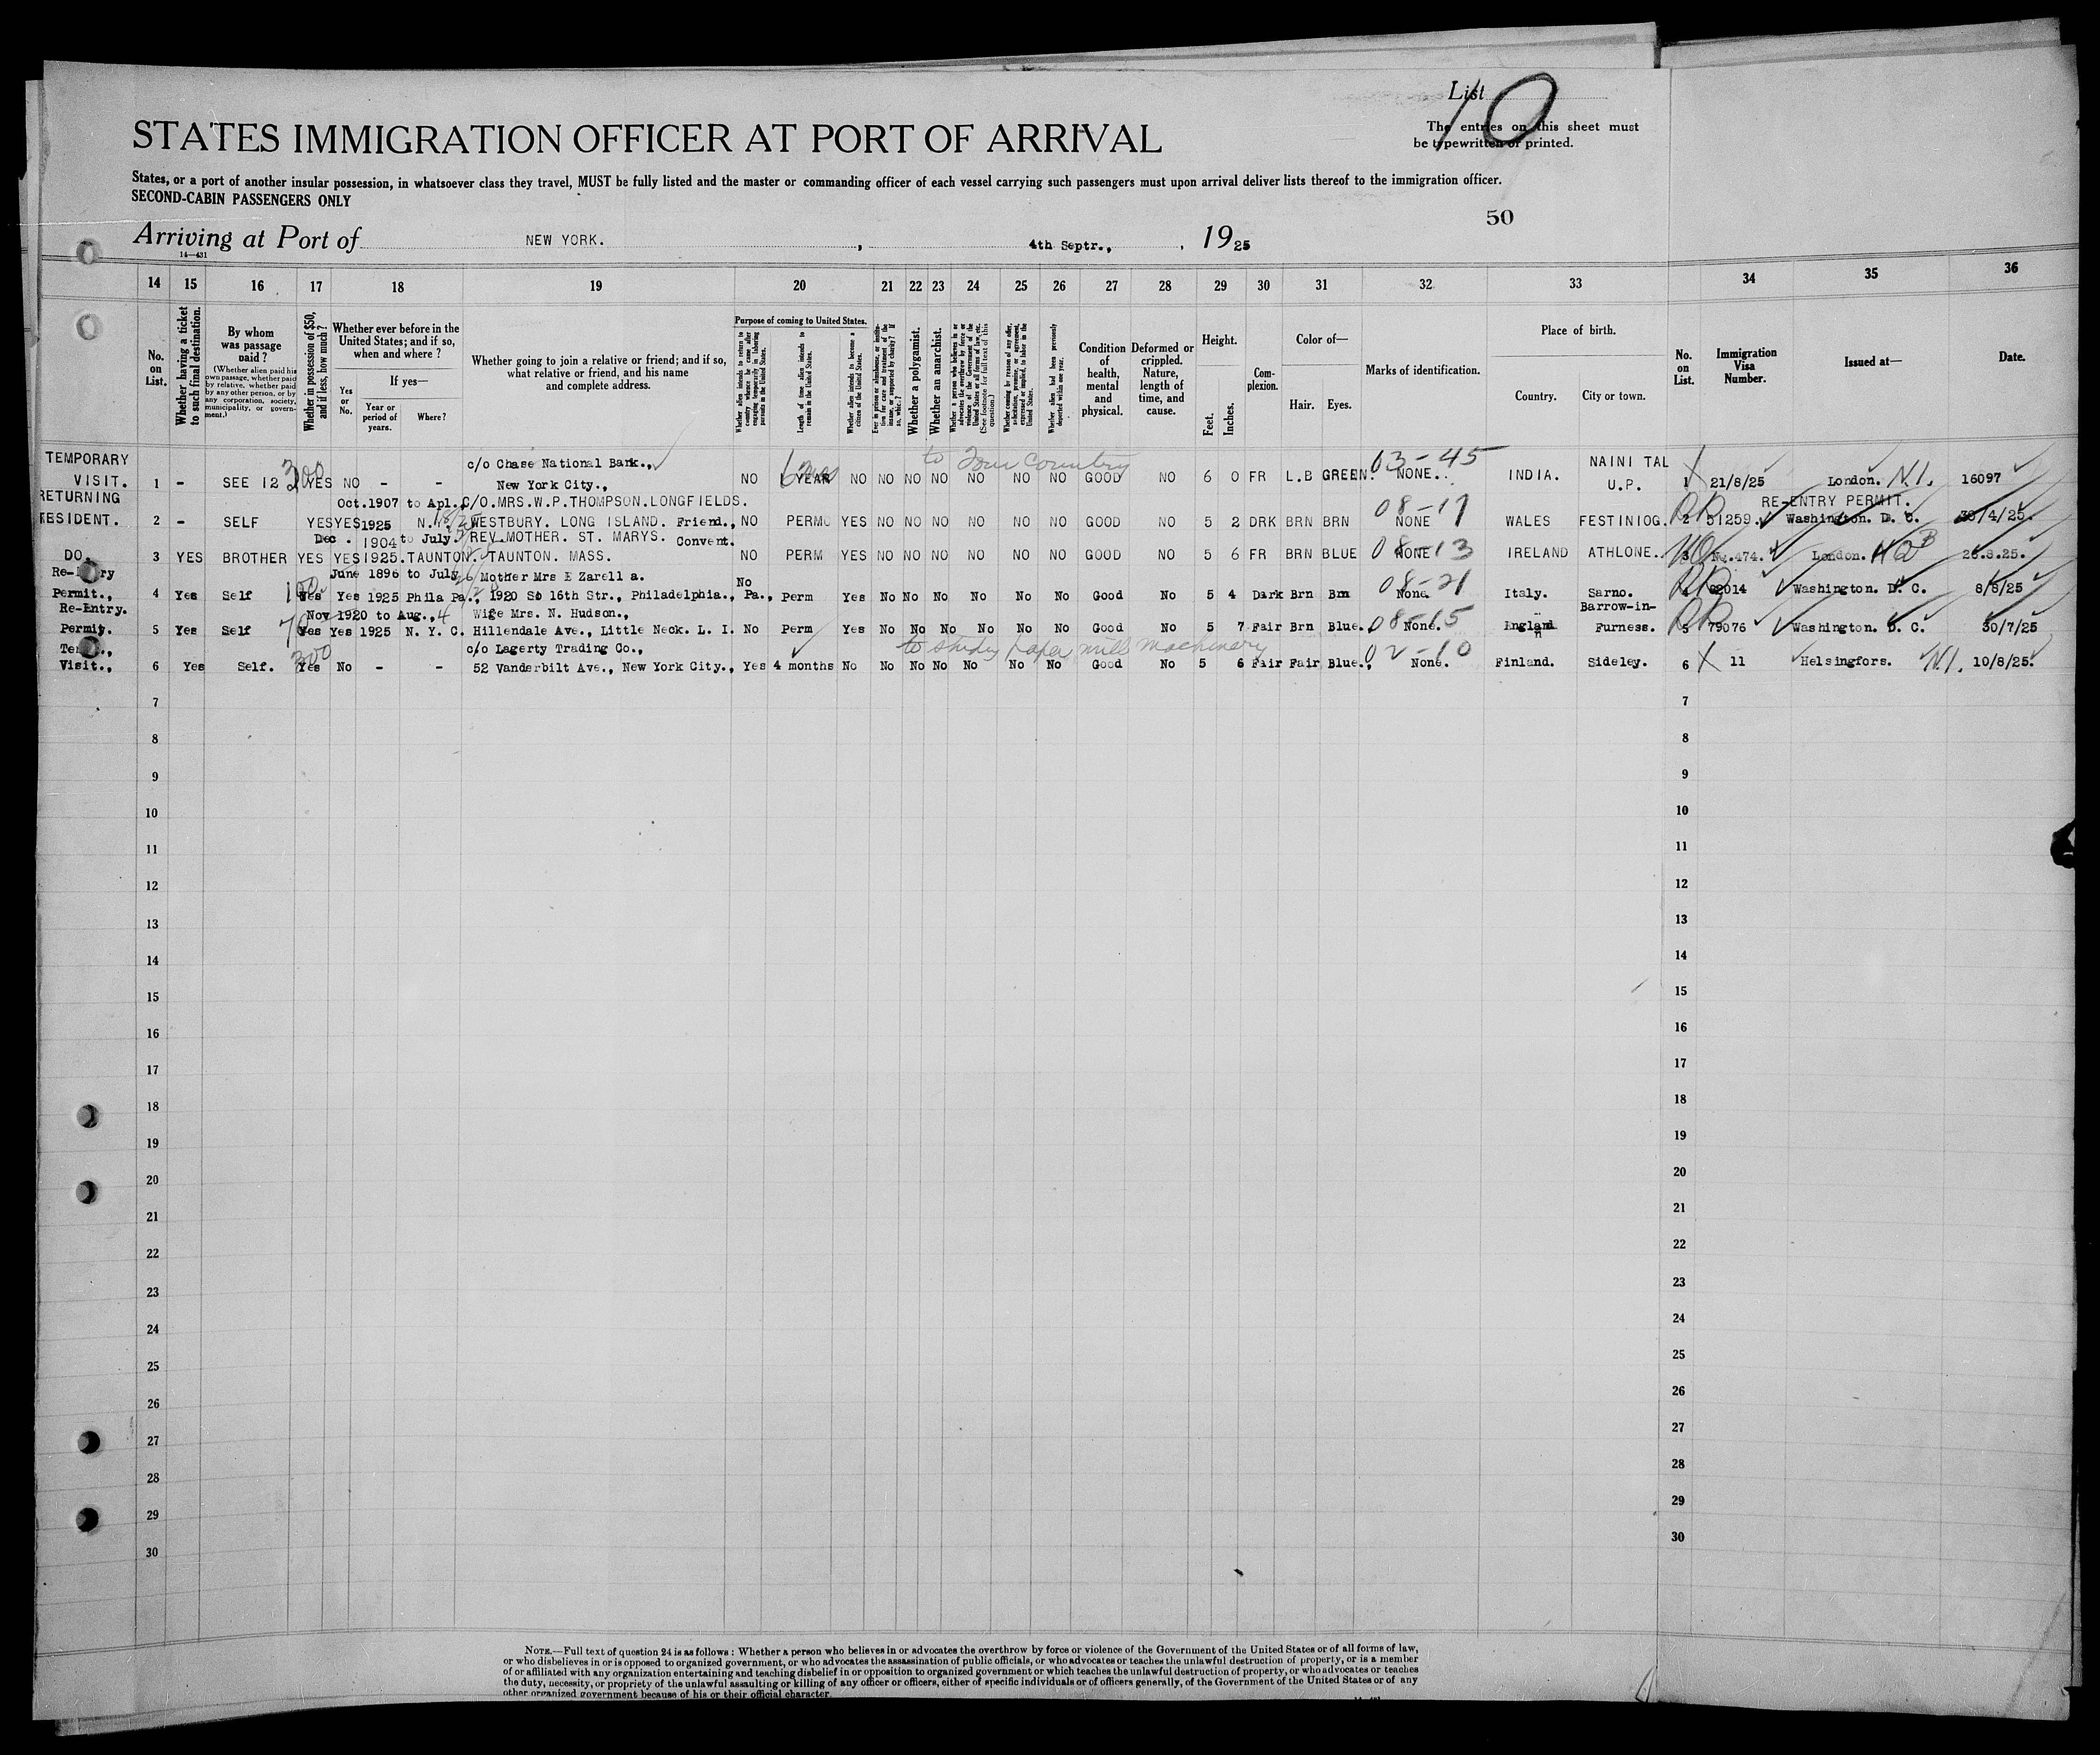 List 10
STATES IMMIGRATION OFFICER AT PORT OF ARRIVAL
The entries on this sheet must
be typewritten or printed.
States, or a port of another insular possession, in whatsoever class they travel, MUST be fully listed and the master or commanding officer of each vessel carrying such passengers must upon arrival deliver lists thereof to the immigration officer.
SECOND-CABIN PASSENGERS ONLY
50
Arriving at Port of NEW YORK. , 4th Septr., , 1925
14—431
14 15 16 17 18 19 20 21 22 23 24 25 26 27 28 29 30 31 32 33 34 35 36
No. on List.
Whether having a ticket to such final destination.
By whom was passage paid?
(Whether alien paid his own passage, whether paid by relative, whether paid by any other person, or by any corporation, society, municipality, or government.)
Whether in possession of $50, and if less, how much?
Whether ever before in the United States; and if so, when and where?
If yes—
Yes or No.
Year or period of years.
Where?
Whether going to join a relative or friend; and if so, what relative or friend, and his name and complete address.
Purpose of coming to United States.
Whether alien intends to return to country whence he came after engaging temporarily in laboring pursuits in the United States.
Length of time alien intends to remain in the United States.
Whether alien intends to become a citizen of the United States.
Ever in prison or almshouse, or institution for care and treatment of the insane, or supported by charity? If so, which?
Whether a polygamist.
Whether an anarchist.
Whether a person who believes in or advocates the overthrow by force or violence of the Government of the United States or all forms of law, etc. (See footnote for full text of this question.)
Whether coming by reason of any offer, solicitation, promise, or agreement, expressed or implied, to labor in the United States.
Whether alien had been previously deported within one year.
Condition of health, mental and physical.
Deformed or crippled. Nature, length of time, and cause.
Height.
Feet. Inches.
Complexion.
Color of—
Hair. Eyes.
Marks of identification.
Place of birth.
Country. City or town.
No. on List.
Immigration Visa Number.
Issued at—
Date.
TEMPORARY c/o Chase National Bank., to Tour Country 03-45 NAINI TAL
VISIT. 1 - SEE 12 300 YES NO - - New York City., NO 1 YEAR 6 mos NO NO NO NO NO NO NO GOOD NO 6 0 FR L.B GREEN. NONE. INDIA. U.P. 1 X 21/8/25 London. N.I. 16097
RETURNING Oct.1907 to Apl., C/O.MRS.W.P.THOMPSON.LONGFIELDS. 08-17 RE-ENTRY PERMIT.
RESIDENT. 2 - SELF YES YES 1925 WESTBURY. LONG ISLAND. Friend., NO PERM YES NO NO NO NO NO NO GOOD NO 5 2 DRK BRN BRN NONE WALES FESTINIOG. 2 51259. Washington. D. C. 30/4/25.
Dec. 1904 to July. REV.MOTHER. ST. MARYS. Convent.
DO. 3 YES BROTHER YES YES 1925. TAUNTON. TAUNTON. MASS. NO PERM YES NO NO NO NO NO NO GOOD NO 5 6 FR BRN BLUE 08-13 NONE IRELAND ATHLONE. 3 No.474. London. 26.8.25.
June 1896 to July Mother Mrs E Zarella. 08-21
Permit., 4 Yes Self 100 Yes Yes 1925 Phila Pa., 1920 So 16th Str., Philadelphia., Pa., No Perm Yes No No No No No No Good No 5 4 Dark Brn Brn None. Italy. Sarno. 4 92014 Washington. D. C. 8/8/25
Re-Entry. Nov 1920 to Aug., Wife Mrs. N. Hudson., 08-15 Barrow-in-
Permit. 5 Yes Self 70 Yes Yes 1925 N. Y. C. Hillendale Ave., Little Neck. L. I. No Perm Yes No No No No No No Good No 5 7 Fair Brn Blue. None. England Furness. 5 79076 Washington. D. C. 30/7/25
300 c/o Lagerty Trading Co., to study paper mill machinery 02-10
Visit., 6 Yes Self. Yes No - - 52 Vanderbilt Ave., New York City., Yes 4 months No No No No No No No Good No 5 6 Fair Fair Blue., None. Finland. Sideley. 6 X 11 Helsingfors. N.I. 10/8/25.
7 7
8 8
9 9
10 10
11 11
12 12
13 13
14 14
15 15
16 16
17 17
18 18
19 19
20 20
21 21
22 22
23 23
24 24
25 25
26 26
27 27
28 28
29 29
30 30
NOTE.—Full text of question 24 is as follows: Whether a person who believes in or advocates the overthrow by force or violence of the Government of the United States or of all forms of law,
or who disbelieves in or is opposed to organized government, or who advocates the assassination of public officials, or who advocates or teaches the unlawful destruction of property, or is a member
of or affiliated with any organization entertaining and teaching disbelief in or opposition to organized government or which teaches the unlawful destruction of property, or who advocates or teaches
the duty, necessity, or propriety of the unlawful assaulting or killing of any officer or officers, either of specific individuals or of officers generally, of the Government of the United States or of any
other organized government because of his or their official character.